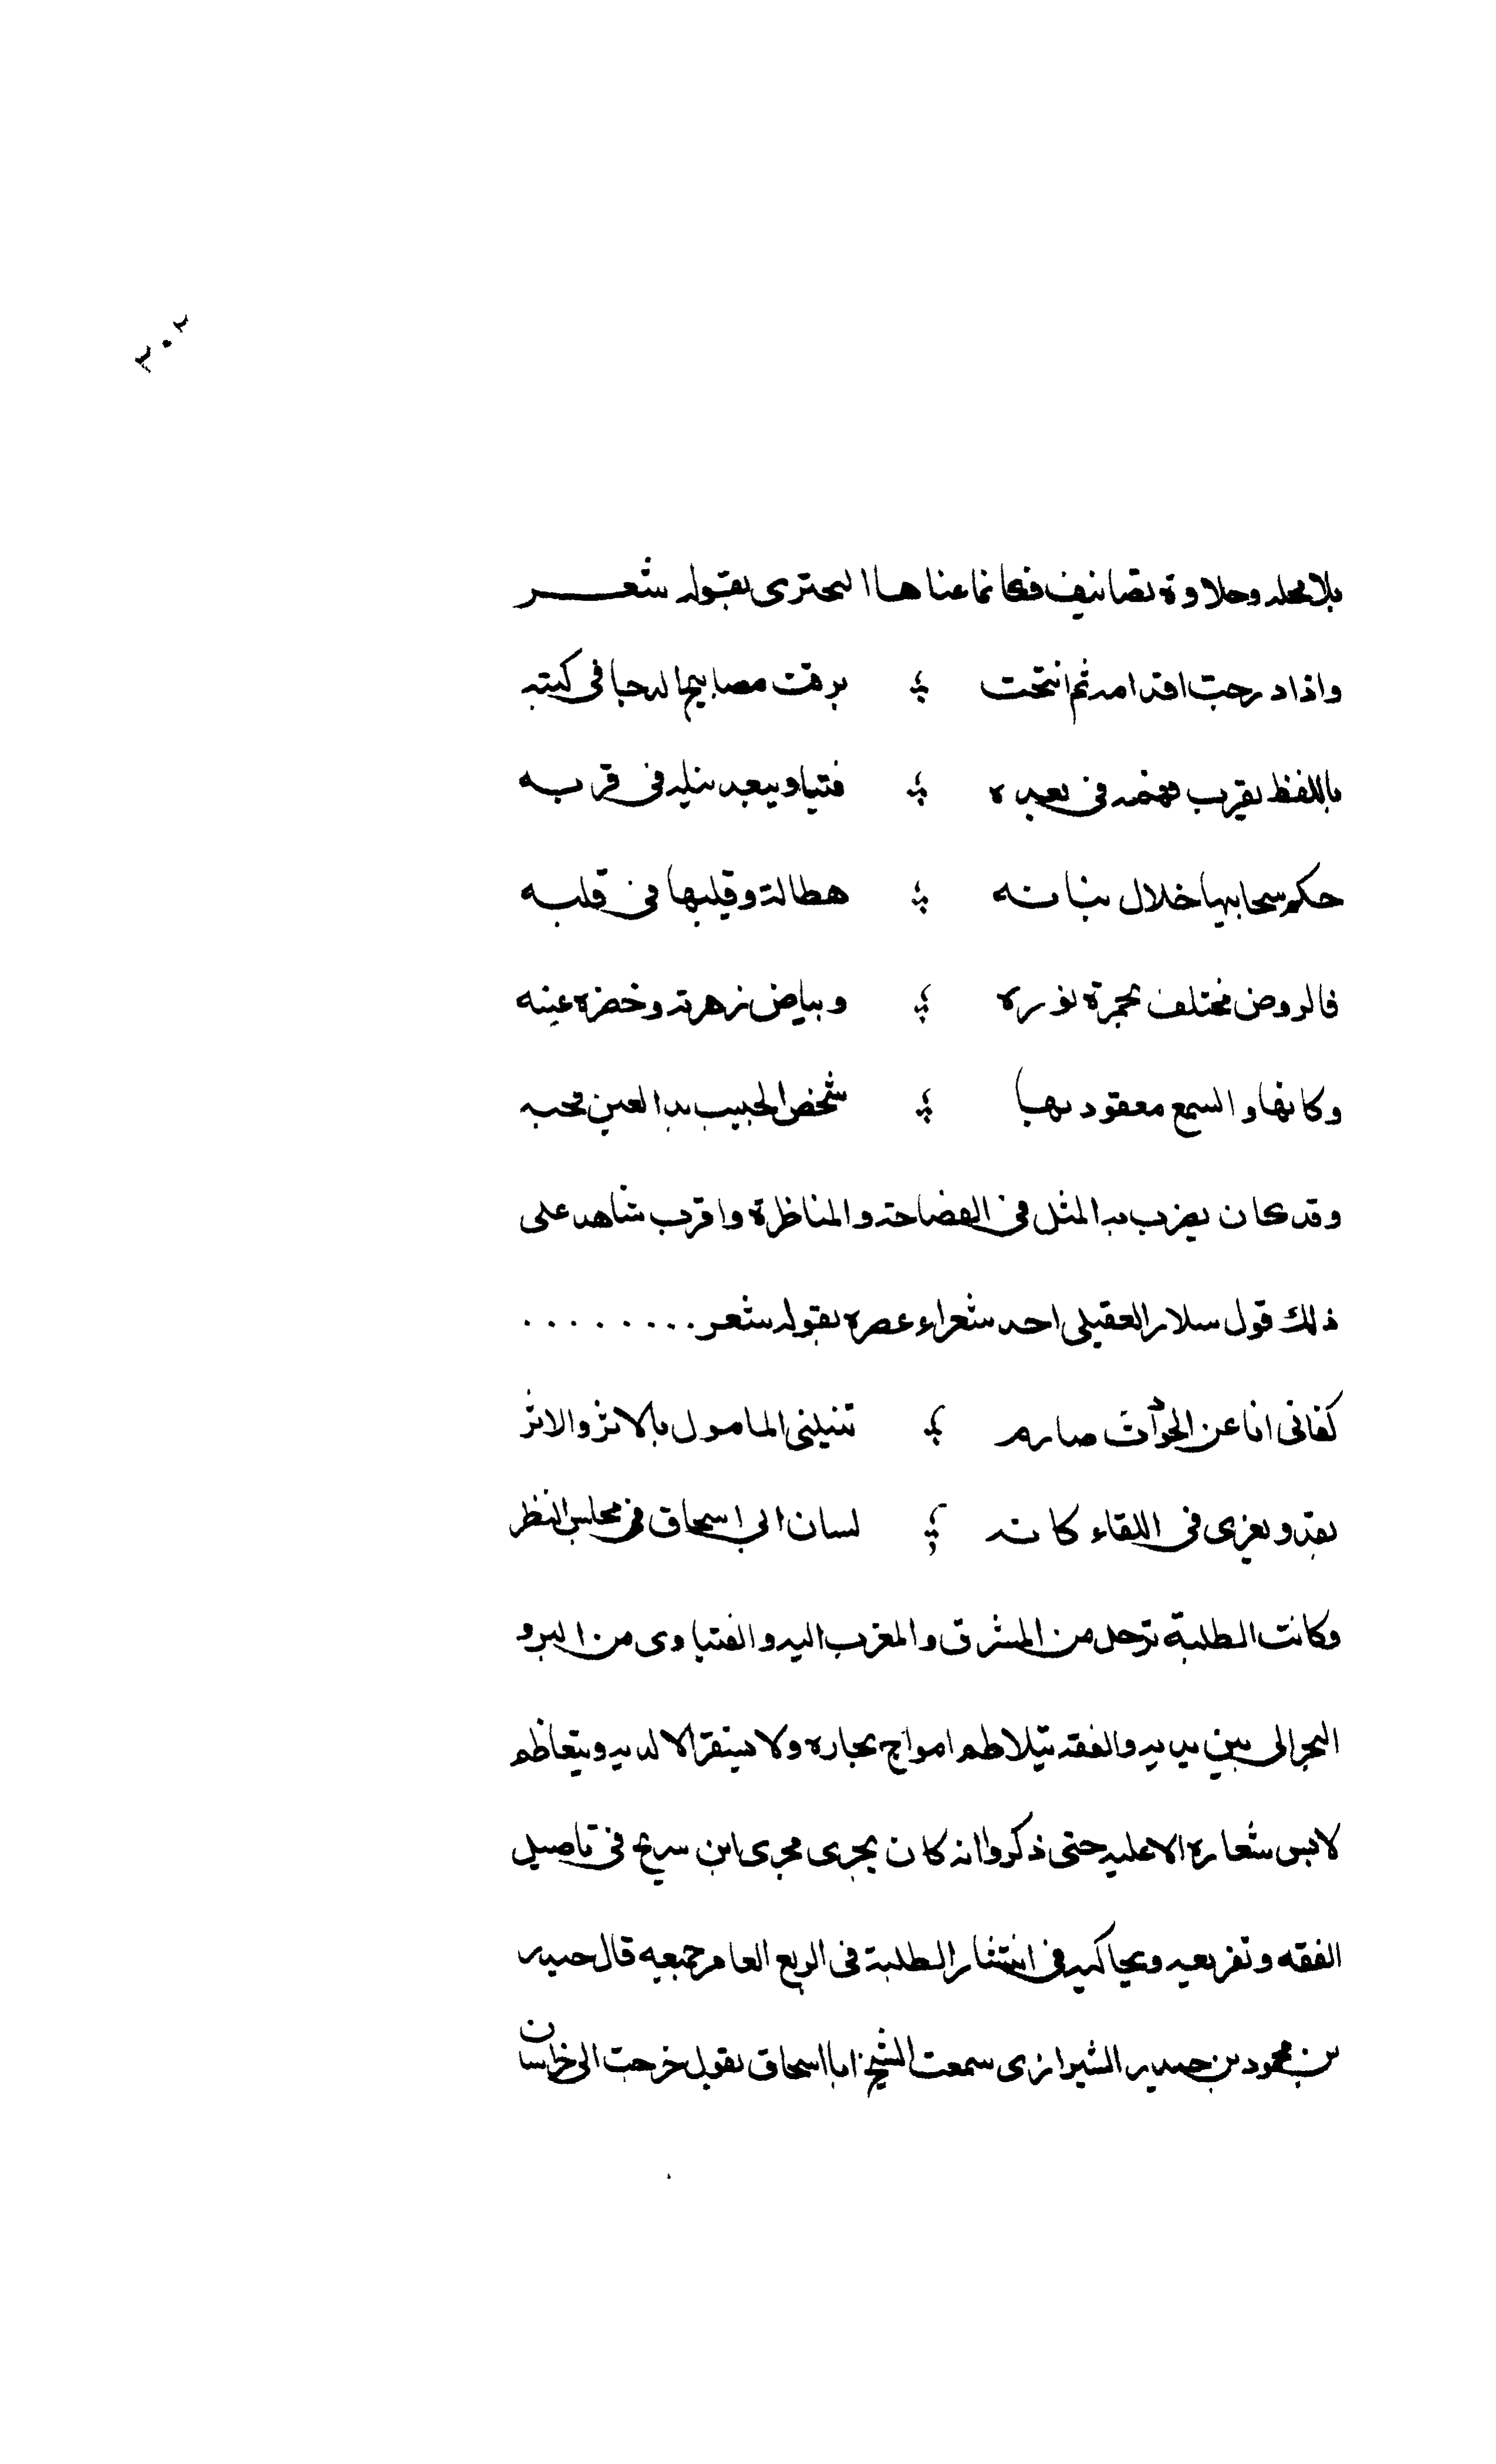 ٢٠٢
بلا محله وحلاوة تصانيف فكانما عناها البحترى بقوله شعر
واذا درجت اقدامه ثم انتحت ؛ برقت مصابيح الدجا فى كتبه
باللفظ يقرب فهمه فى بعده ؛ فتيا ويبعد نيله فى قربه
حكم سحابيها خلال بنانه ؛ هطالة وقليبها فى قلبه
فالروض مختلف بحمرة نوره ؛ وبياض زهرته وخضرة عينه
وكانها والسمع معقود بها ؛ شخص الحبيب بدا لعين محبه
وقد كان يضرب به المثل فى الفصاحة والمناظرة واقرب شاهد على
ذلك قول سلار العقيلى احد شعراء عصره بقوله شعر ........
كفانى انا عن الحوادث صارم ؛ تنيلنى المامول بالاثر والاثر
يقد ويفرى فى اللقاء كانه ؛ لسان ابى اسحاق فى مجلس النظر
وكانت الطلبة ترحل من المشرق والمغرب اليه والفتياوى من البر و
البحر الى بين يديه والفقه تتلاطم امواج بحاره ولا يستقر الا لديه ويتعاظم
لابس شعاره الا عليه حتى ذكروا انه كان يجرى مجرى ابن سريج فى تاصيل
الفقه وتفريعه ويحاكيه فى انتشار الطلبة فى الربع العامر جميعه قال حيدر
بن محمود بن حيدر الشيرازى سمعت الشيخ ابا اسحاق يقول خرجت الى خراسان